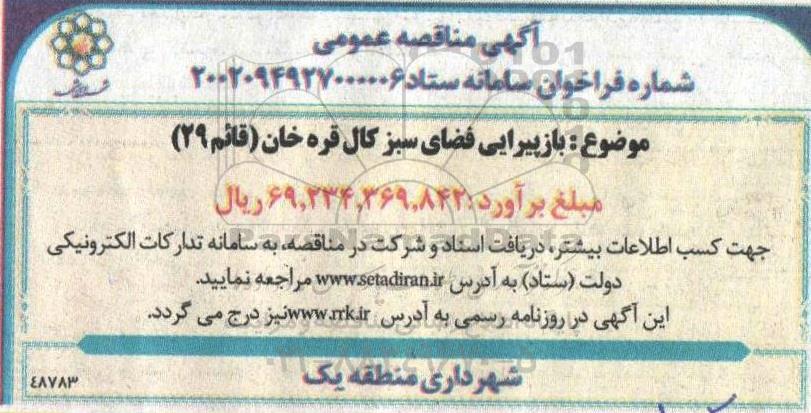 آگهی مناقصه عمومی
شماره فراخوان سامانه ستاد ۲۰۰۲۰۹۴۹۲۷۰۰۰۰۰۶
موضوع : بازپیرایی فضای سبز کال قره خان (قائم ۲۹)
مبلغ برآورد: ۶۹,۲۳۴,۳۶۹,۸۴۲ ریال
ParsNamadData
جهت کسب اطلاعات بیشتر، دریافت اسناد و شرکت در مناقصه، به سامانه تدارکات الکترونیکی
دولت (ستاد) به آدرس www.setadiran.ir مراجعه نمایید.
این آگهی در روزنامه رسمی به آدرس www.rrk.ir نیز درج می گردد.
شهرداری منطقه یک
٤٨٧٨٣